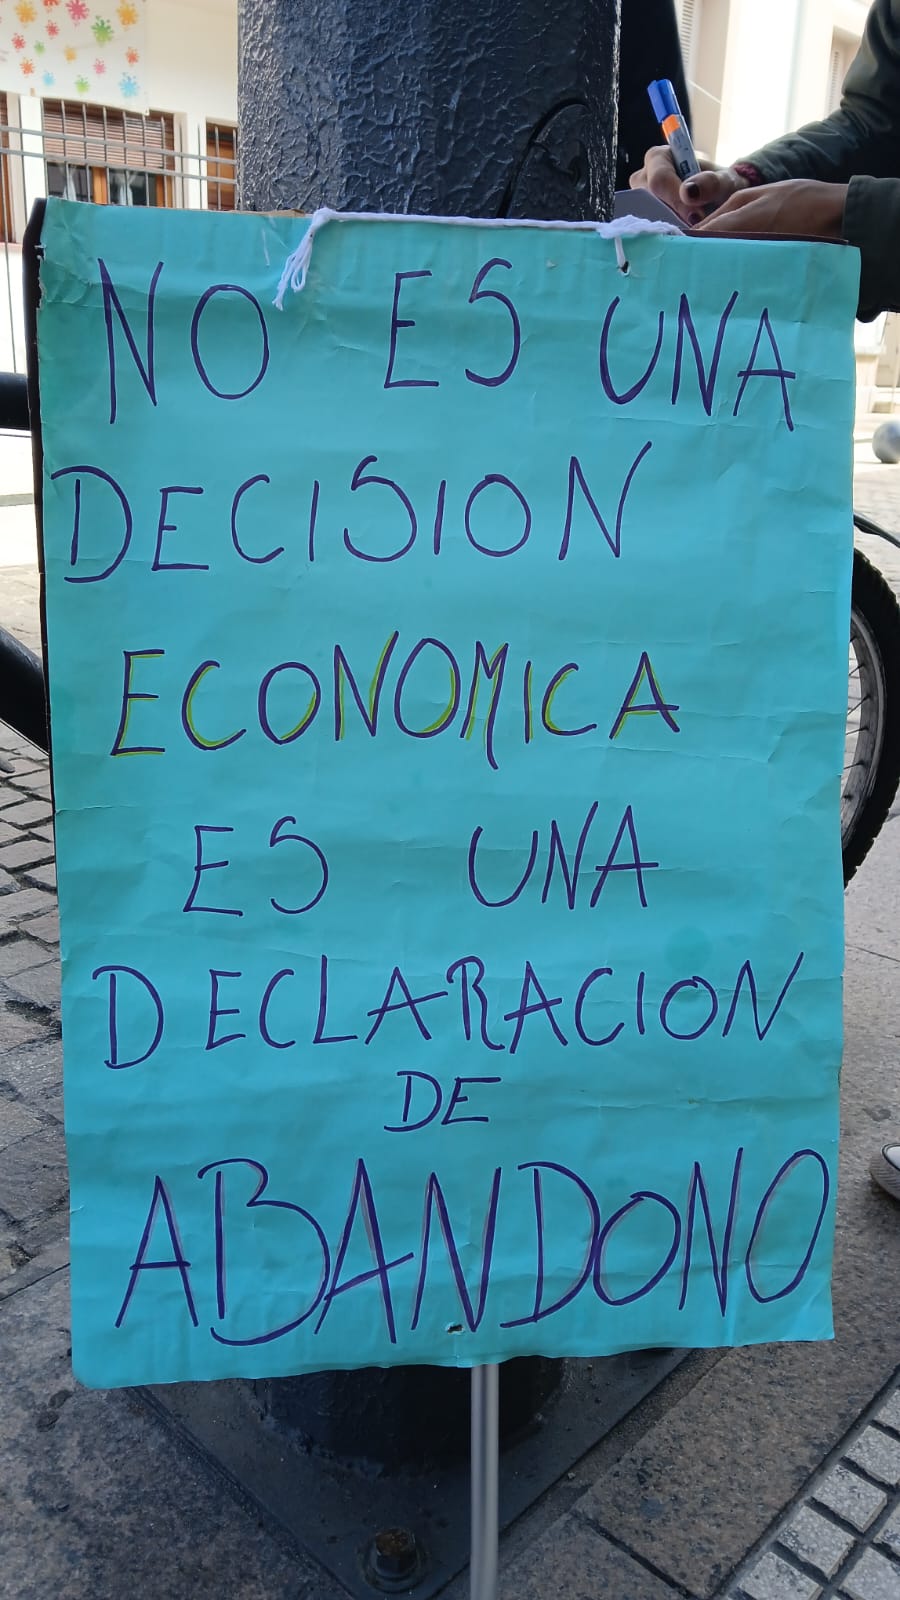 NO ES UNA
DECISION
ECONOMICA
ES UNA
DECLARACION
DE
ABANDONO